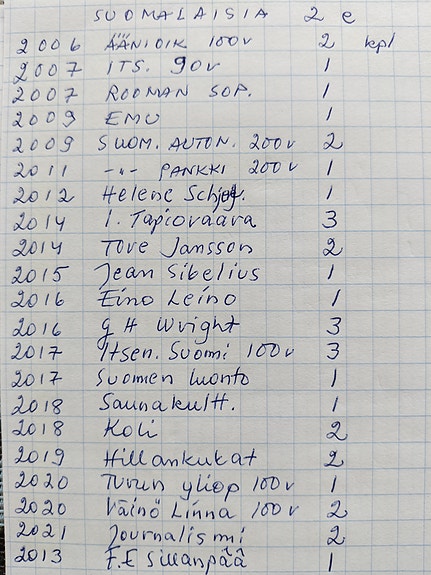 SUOMALAISIA 2 e
2006 ÄÄNIOIK 100v 2 kpl
2007 ITS. 90v 1
2007 ROOMAN SOP. 1
2009 EMU 1
2009 SUOM. AUTON. 200v 2
2011 -"- PANKKI 200v 1
2012 Helene Schjef. 1
2014 I. Tapiovaara 3
2014 Tove Jansson 2
2015 Jean Sibelius 1
2016 Eino Leino 1
2016 G H Wright 3
2017 Itsen. Suomi 100v 3
2017 Suomen luonto 1
2018 Saunakultt. 1
2018 Koli 2
2019 Hillankukat 2
2020 Turun yliop 100v 1
2020 Väinö Linna 100v 2
2021 Journalismi 2
2013 F.E Sillanpää 1